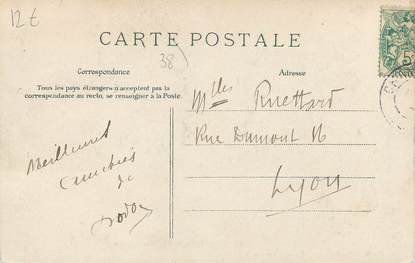 12€
CARTE POSTALE
38)
Correspondance
Adresse
Tous les pays étrangers n'acceptent pas la
correspondance au recto, se renseigner à la Poste.
Mlles Ruettard
Rue Dumont 16
Lyon
Meilleures
amitiés
de